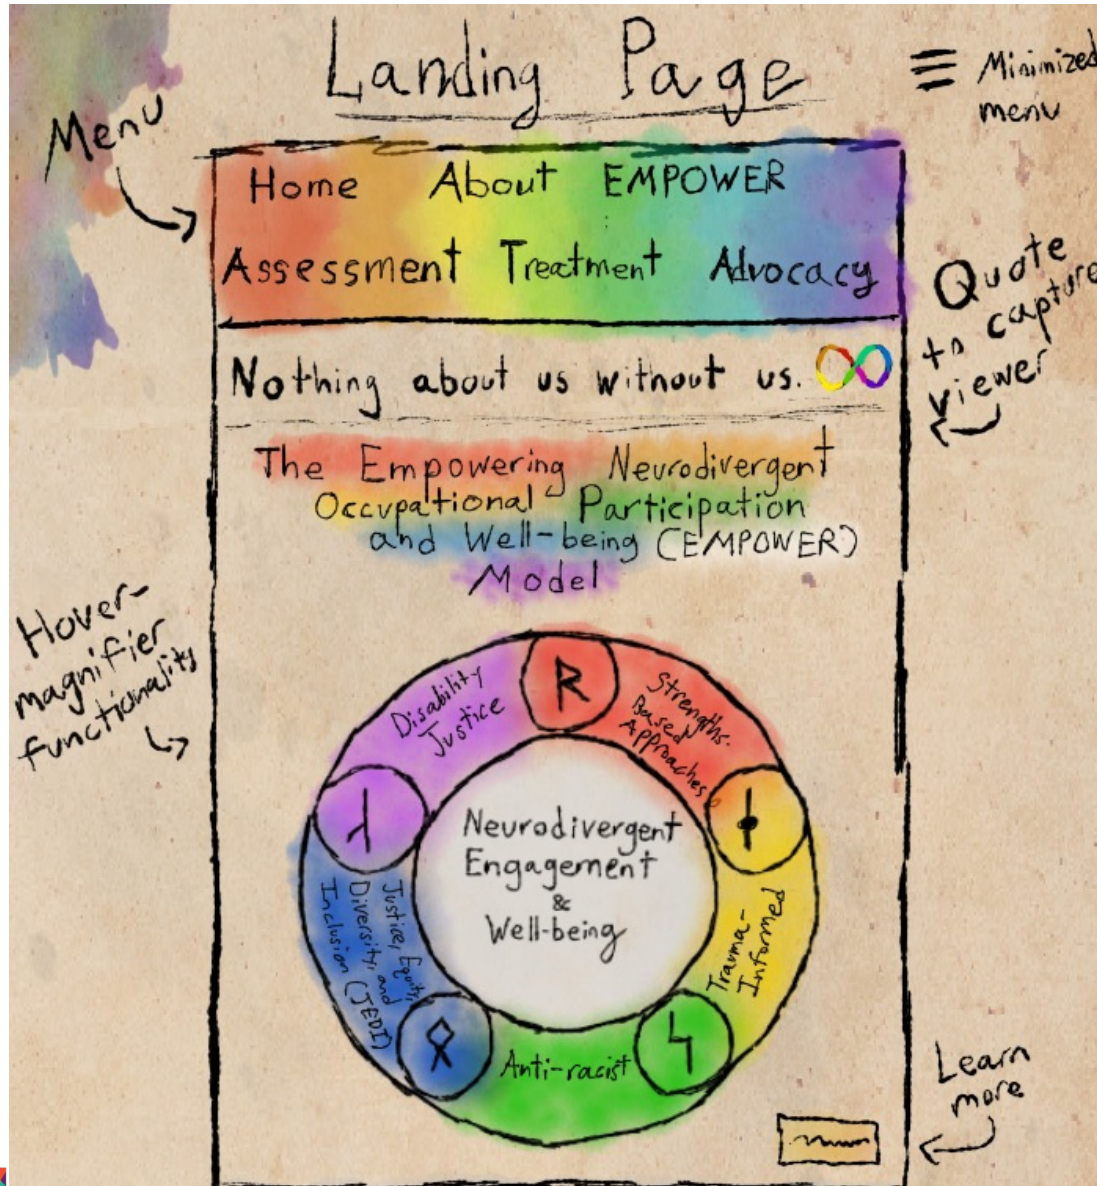 Landing Page
Minimized
menu
Menu
Home About EMPOWER
Assessment Treatment Advocacy
Quote
to capture
viewer
Nothing about us without us.
The Empowering Neurodivergent
Occupational Participation
and Well-being (EMPOWER)
Model
Hover-
magnifier
functionality
Disability
Justice
R
Strengths-
Based
Approaches
Neurodivergent
Engagement
&
Well-being
Trauma-
Informed
Justice, Equity,
Diversity, and
Inclusion (JEDI)
Anti-racist
Learn
more